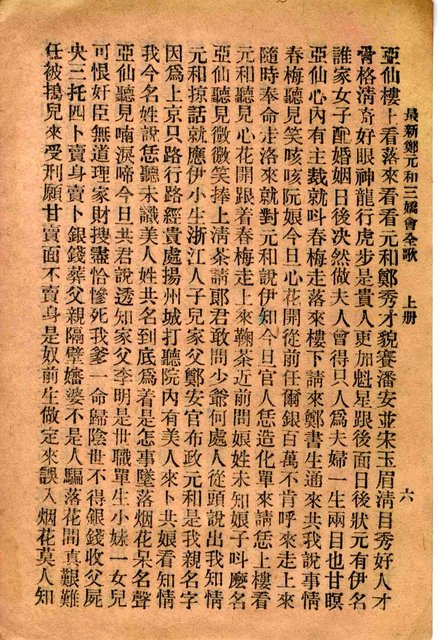 最新鄭元和三嬌會全歌 上冊 六
亞仙樓上看落來看看元和鄭秀才貌賽潘安並宋玉眉清目秀好人才
骨格清奇好眼神龍行虎步是貴人更加魁星跟後面日後狀元有伊名
誰家女子配婚姻日後決然做夫人會得只人為夫婦一生兩目也甘瞑
亞仙心內有主裁就呌春梅走落來樓下請來鄭書生通來共我說事情
春梅聽見笑咳咳阮娘今日心花開從前任爾銀百萬不肯呼來走上來
隨時奉命走洛來就對元和說伊知今日官人恁造化單來請恁上樓看
元和聽見心花開跟着春梅走上來鞠茶近前問娘姓未知娘子呌麽名
亞仙聽見微微笑捧上清茶請郞君敢問少爺何處人從頭說出我知情
元和掠話就應伊小生浙江人子兒家父鄭安官布政元和是我親名字
因為上京只路行路經貴處揚州城打聽院內有美人來卜共娘看知情
我今名姓說恁聽未識美人姓共名到底為着是怎事墜落烟花呆名聲
亞仙聽見喃淚啼今日共君說透知家父李明是世職單生小妹一女兒
可恨奸臣無道理家財搜盡恰慘死我爹一命歸陰世不得銀錢收父屍
央三托四卜賣身賣卜銀錢葬父親隔壁嬸婆不是人騙落花間真艱難
任被搗兒來受刑願甘賣面不賣身是奴前生做定來誤入烟花莫人知